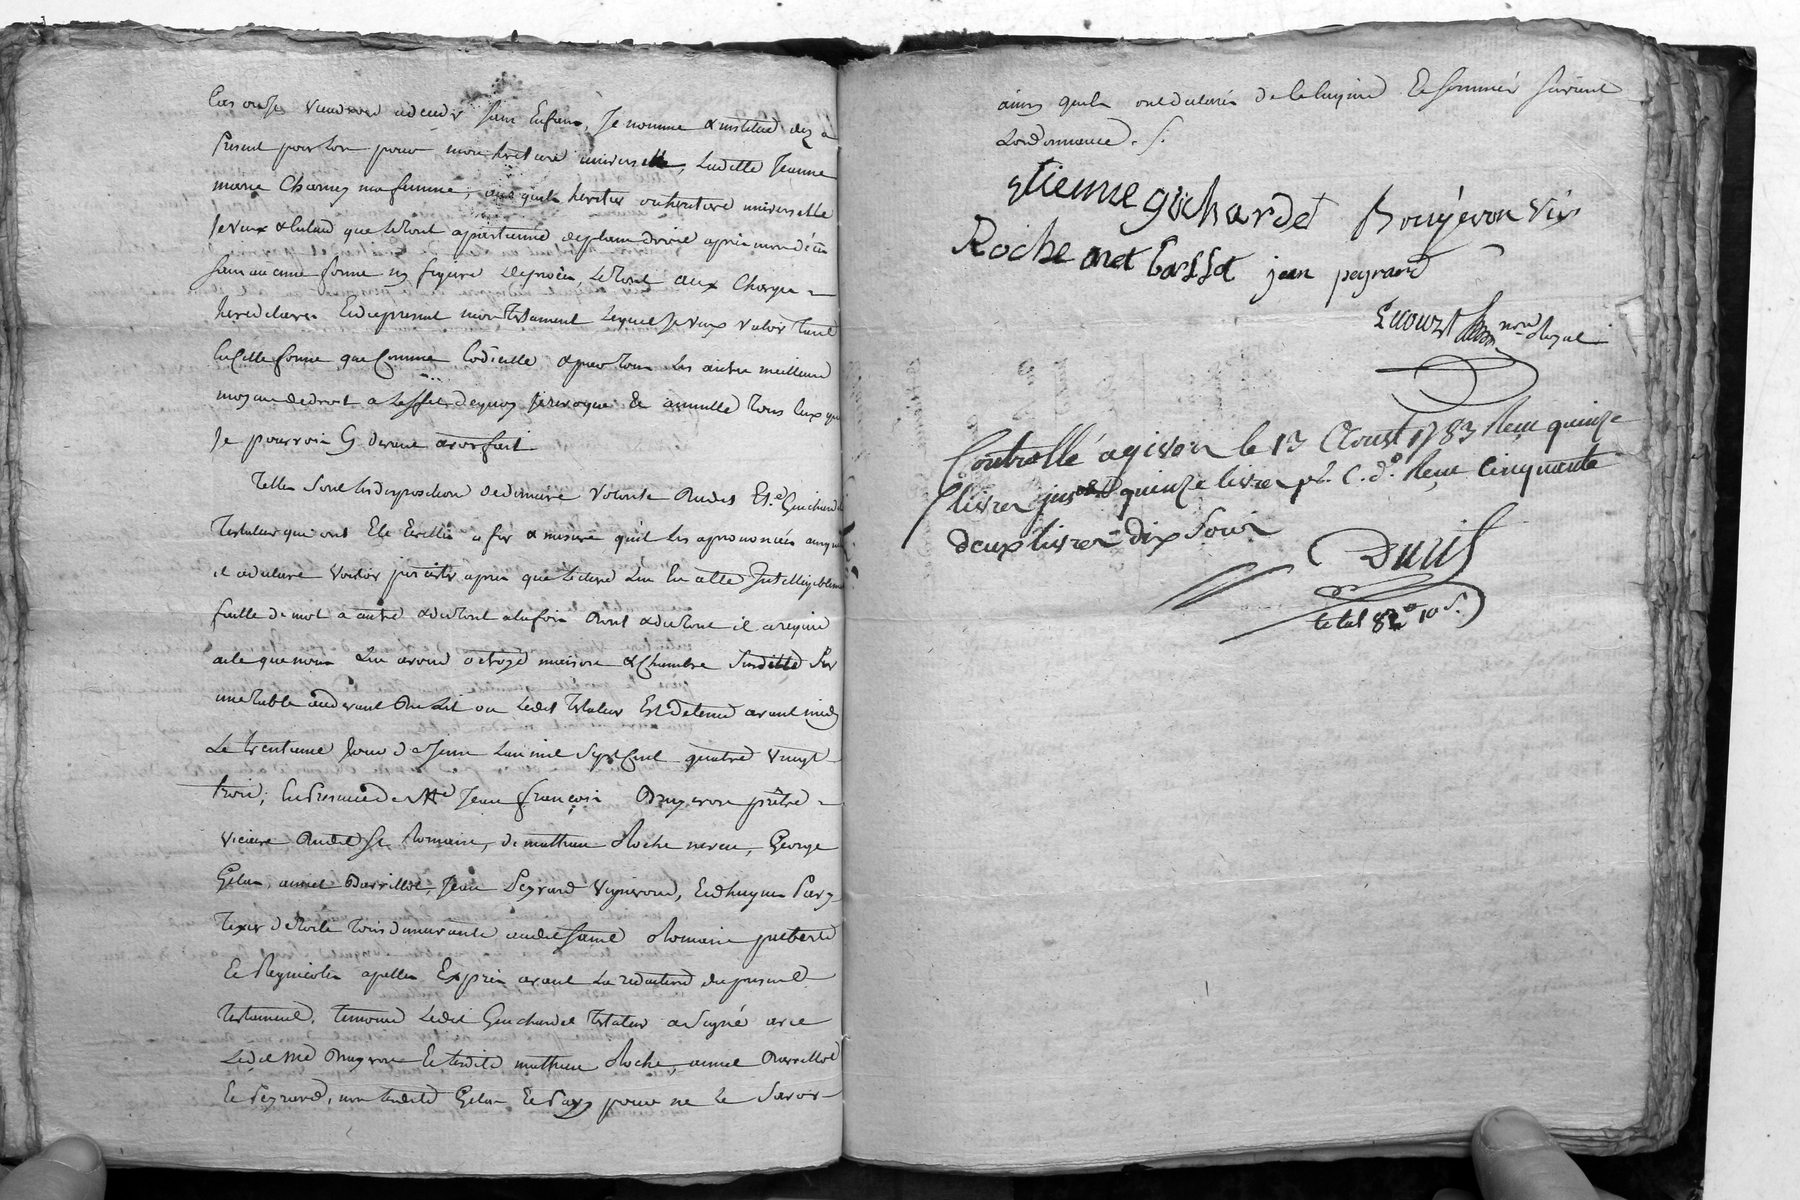 cas ou je viendrois a deceder sans Enfans, Je nomme & institue dez a
Present pour lors pour mon heritiere universelle, Ladite Jeanne
marie Charvey ma femme, auxquels heritier ou heritiere universelle
Je veux & Entend que le tout apartienne de plain droit apres mon décès
sans aucune forme ny figure de proces, le tout aux Charges
hereditaires. Est le present mon testament Lequel je veux valoir tant
En cette forme que Comme Codicille & par tous les autres meilleurs
moyens de droit a L'effet de quoy je revoque & annulle tous ceux que
Je pourrois Cy devant avoir fait.
Telles sont les disposition de derniere volonté dudit Et.e Guichardet
Testateur qui ont Eté Ecrittes a fur & mesure qu'il les a prononcées auxquelles
il a declaré vouloir persister apres que Lecture Lui En a Eté Intelligiblement
faitte de mot a autre & du tout a la fois dont & du tout il a requis
acte que nous Lui avons octroyé maison & Chambre susditte sur
une table au devant du Lit ou Ledit testateur Est detenu avant midy
Le trentieme jour de Juin L'an mil sept Cent quatre vingt
trois, En Presence de Me Jean françois Bouyeron prêtre
vicaire dudit St Romain, de mathieu Roche neveu, George
Gelas, annet Barrillot, Jean Peyrard vignerons, Et
Texier de toile tous demeurants audit saint Romain puberts
Et Regnicoles apellés Exprès avant la redaction du present
Testament, temoins Ledit Guichardet testateur a signé avec
Ledit Me Bouyeron Et lesdits mathieu Roche, annet Barrillot
Et Peyrard, non lesdits Gelas Et Pary pour ne le savoir
ainsy qu'ils ont declarés de ce Enquis Et sommés suivant
L'ordonnance. /.
Etienne guichardet Bouyeron vic
Roche anet jean peyrard
no.re Royal
Controllé a givors le 13 Aoust 1783 Reçu quinze
livres quinze livres pr. C. d.o Reçu Cinquante
deux livres dix sous
total 82# 10 s.